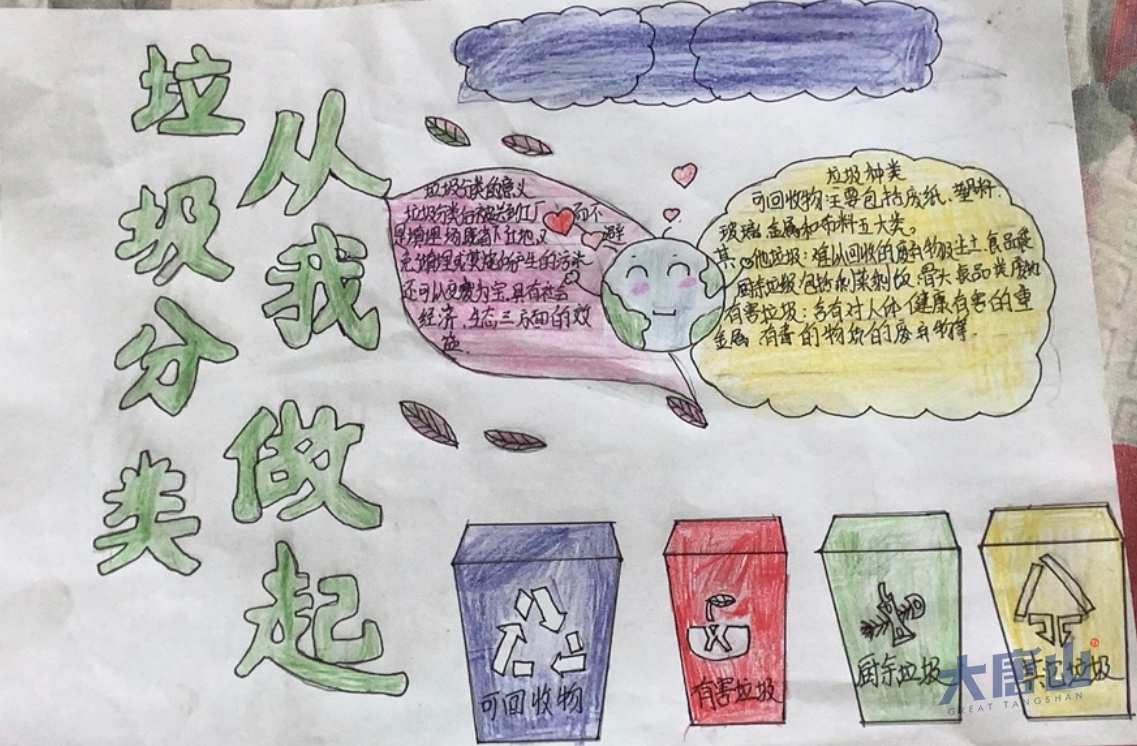 垃圾分类
从我做起
垃圾分类的意义
垃圾分类后被送到工厂而不
是填埋场既省下土地又避
免填埋或焚烧所产生的污染
还可以变废为宝具有社会
经济、生态三方面的效
益.
垃圾种类
可回收物:主要包括废纸、塑料.
玻璃 金属和布料五大类。
其他垃圾:难以回收的废弃物及尘土 食品
厨余垃圾:包括剩菜剩饭、骨头 食品类废物
有害垃圾:含有对人体健康有害的重
金属 有毒的物质的废弃物等.
可回收物
有害垃圾
厨余垃圾
其它垃圾
大唐山
GREAT TANGSHAN